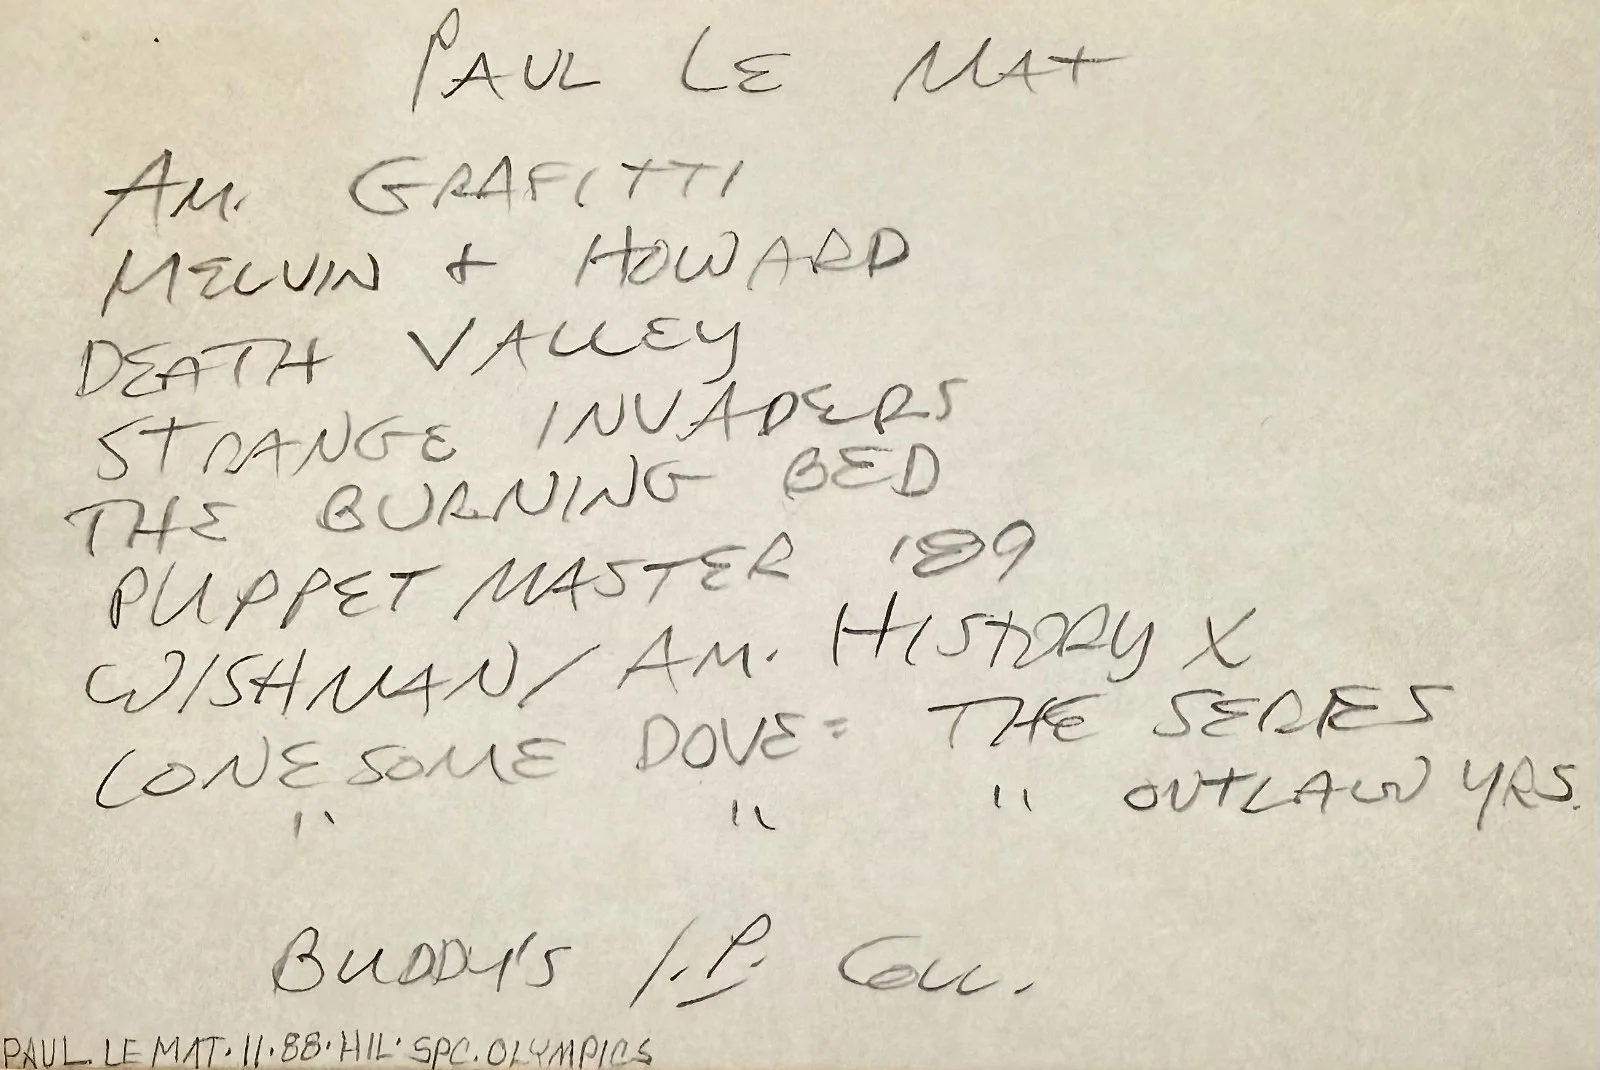 PAUL LE MAT
AM. GRAFITTI
MELVIN & HOWARD
DEATH VALLEY
STRANGE INVADERS
THE BURNING BED
PUPPET MASTER '89
WISHMAN/ AM. HISTORY X
LONESOME DOVE= THE SERIES
" " " OUTLAW YRS.
BUDDY'S I.P. COLL.
PAUL. LE MAT. 11.88. HIL. SPC. OLYMPICS